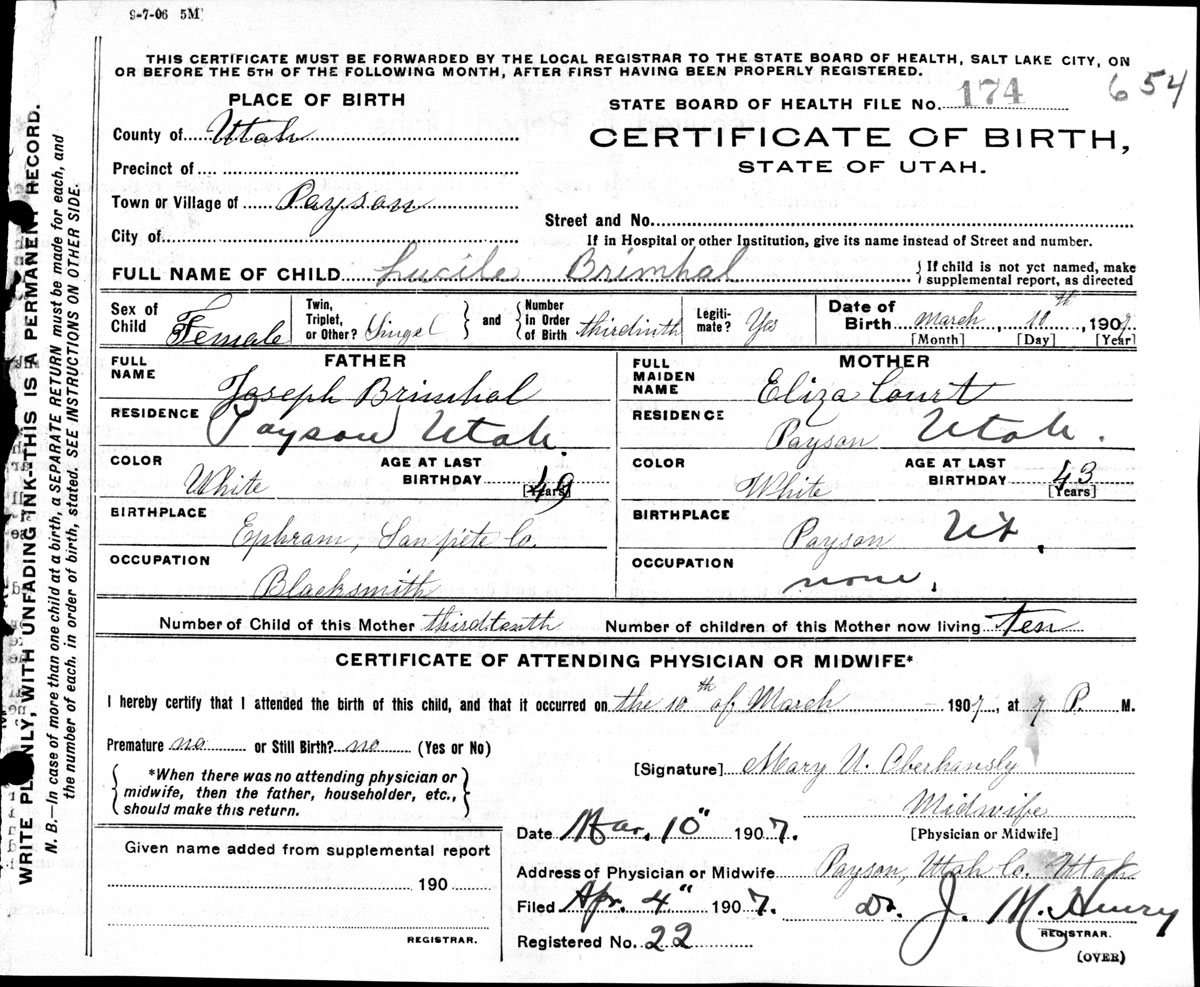 9-7-06 5M
THIS CERTIFICATE MUST BE FORWARDED BY THE LOCAL REGISTRAR TO THE STATE BOARD OF HEALTH, SALT LAKE CITY, ON
OR BEFORE THE 5TH OF THE FOLLOWING MONTH, AFTER FIRST HAVING BEEN PROPERLY REGISTERED.
WRITE PLAINLY, WITH UNFADING INK--THIS IS A PERMANENT RECORD.
N. B.—In case of more than one child at a birth, a SEPARATE RETURN must be made for each, and
the number of each, in order of birth, stated. SEE INSTRUCTIONS ON OTHER SIDE.
PLACE OF BIRTH
STATE BOARD OF HEALTH FILE No. 174 654
County of Utah
CERTIFICATE OF BIRTH,
STATE OF UTAH.
Precinct of
Town or Village of Payson
Street and No.
City of
If in Hospital or other Institution, give its name instead of Street and number.
FULL NAME OF CHILD Lucile Brimhal { If child is not yet named, make
supplemental report, as directed
Sex of Child Female Twin, Triplet, or Other? Singel } and { Number in Order of Birth thirdinth Legiti-mate? Yes Date of Birth March, 10th, 1907
[Month] [Day] [Year]
FATHER
FULL NAME Joseph Brimhal
RESIDENCE Payson Utah.
COLOR White AGE AT LAST BIRTHDAY 49 [Years]
BIRTHPLACE Ephram, Sanpete Co.
OCCUPATION Blacksmith
MOTHER
FULL MAIDEN NAME Eliza Court
RESIDENCE Payson Utah.
COLOR White AGE AT LAST BIRTHDAY 43 [Years]
BIRTHPLACE Payson Ut.
OCCUPATION none.
Number of Child of this Mother thirdtenth Number of children of this Mother now living Ten
CERTIFICATE OF ATTENDING PHYSICIAN OR MIDWIFE*
I hereby certify that I attended the birth of this child, and that it occurred on the 10th of March 1907, at 7 P. M.
Premature no or Still Birth? no (Yes or No)
{ *When there was no attending physician or
midwife, then the father, householder, etc.,
should make this return. }
[Signature] Mary U. Oberhansly
Midwife
[Physician or Midwife]
Date Mar. 10" 1907.
Given name added from supplemental report
190
REGISTRAR.
Address of Physician or Midwife Payson, Utah Co. Utah
Filed Apr. 4" 1907. Dr. J. M. Henry
REGISTRAR.
Registered No. 22
(OVER)